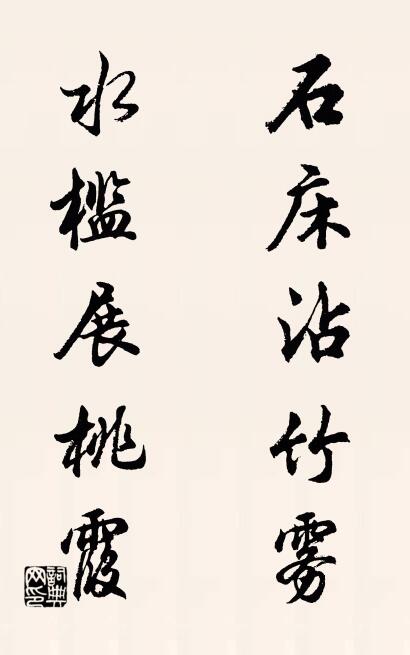 石床沾竹雾
水槛展桃霞
词典网印